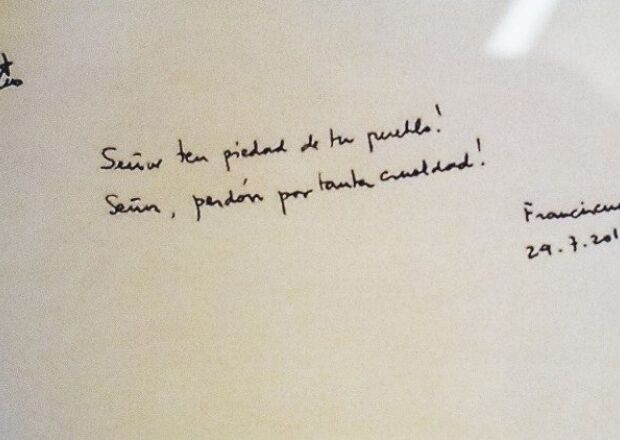 Señor ten piedad de tu pueblo!
Señor, perdón por tanta crueldad!
Franciscu
29.7.201